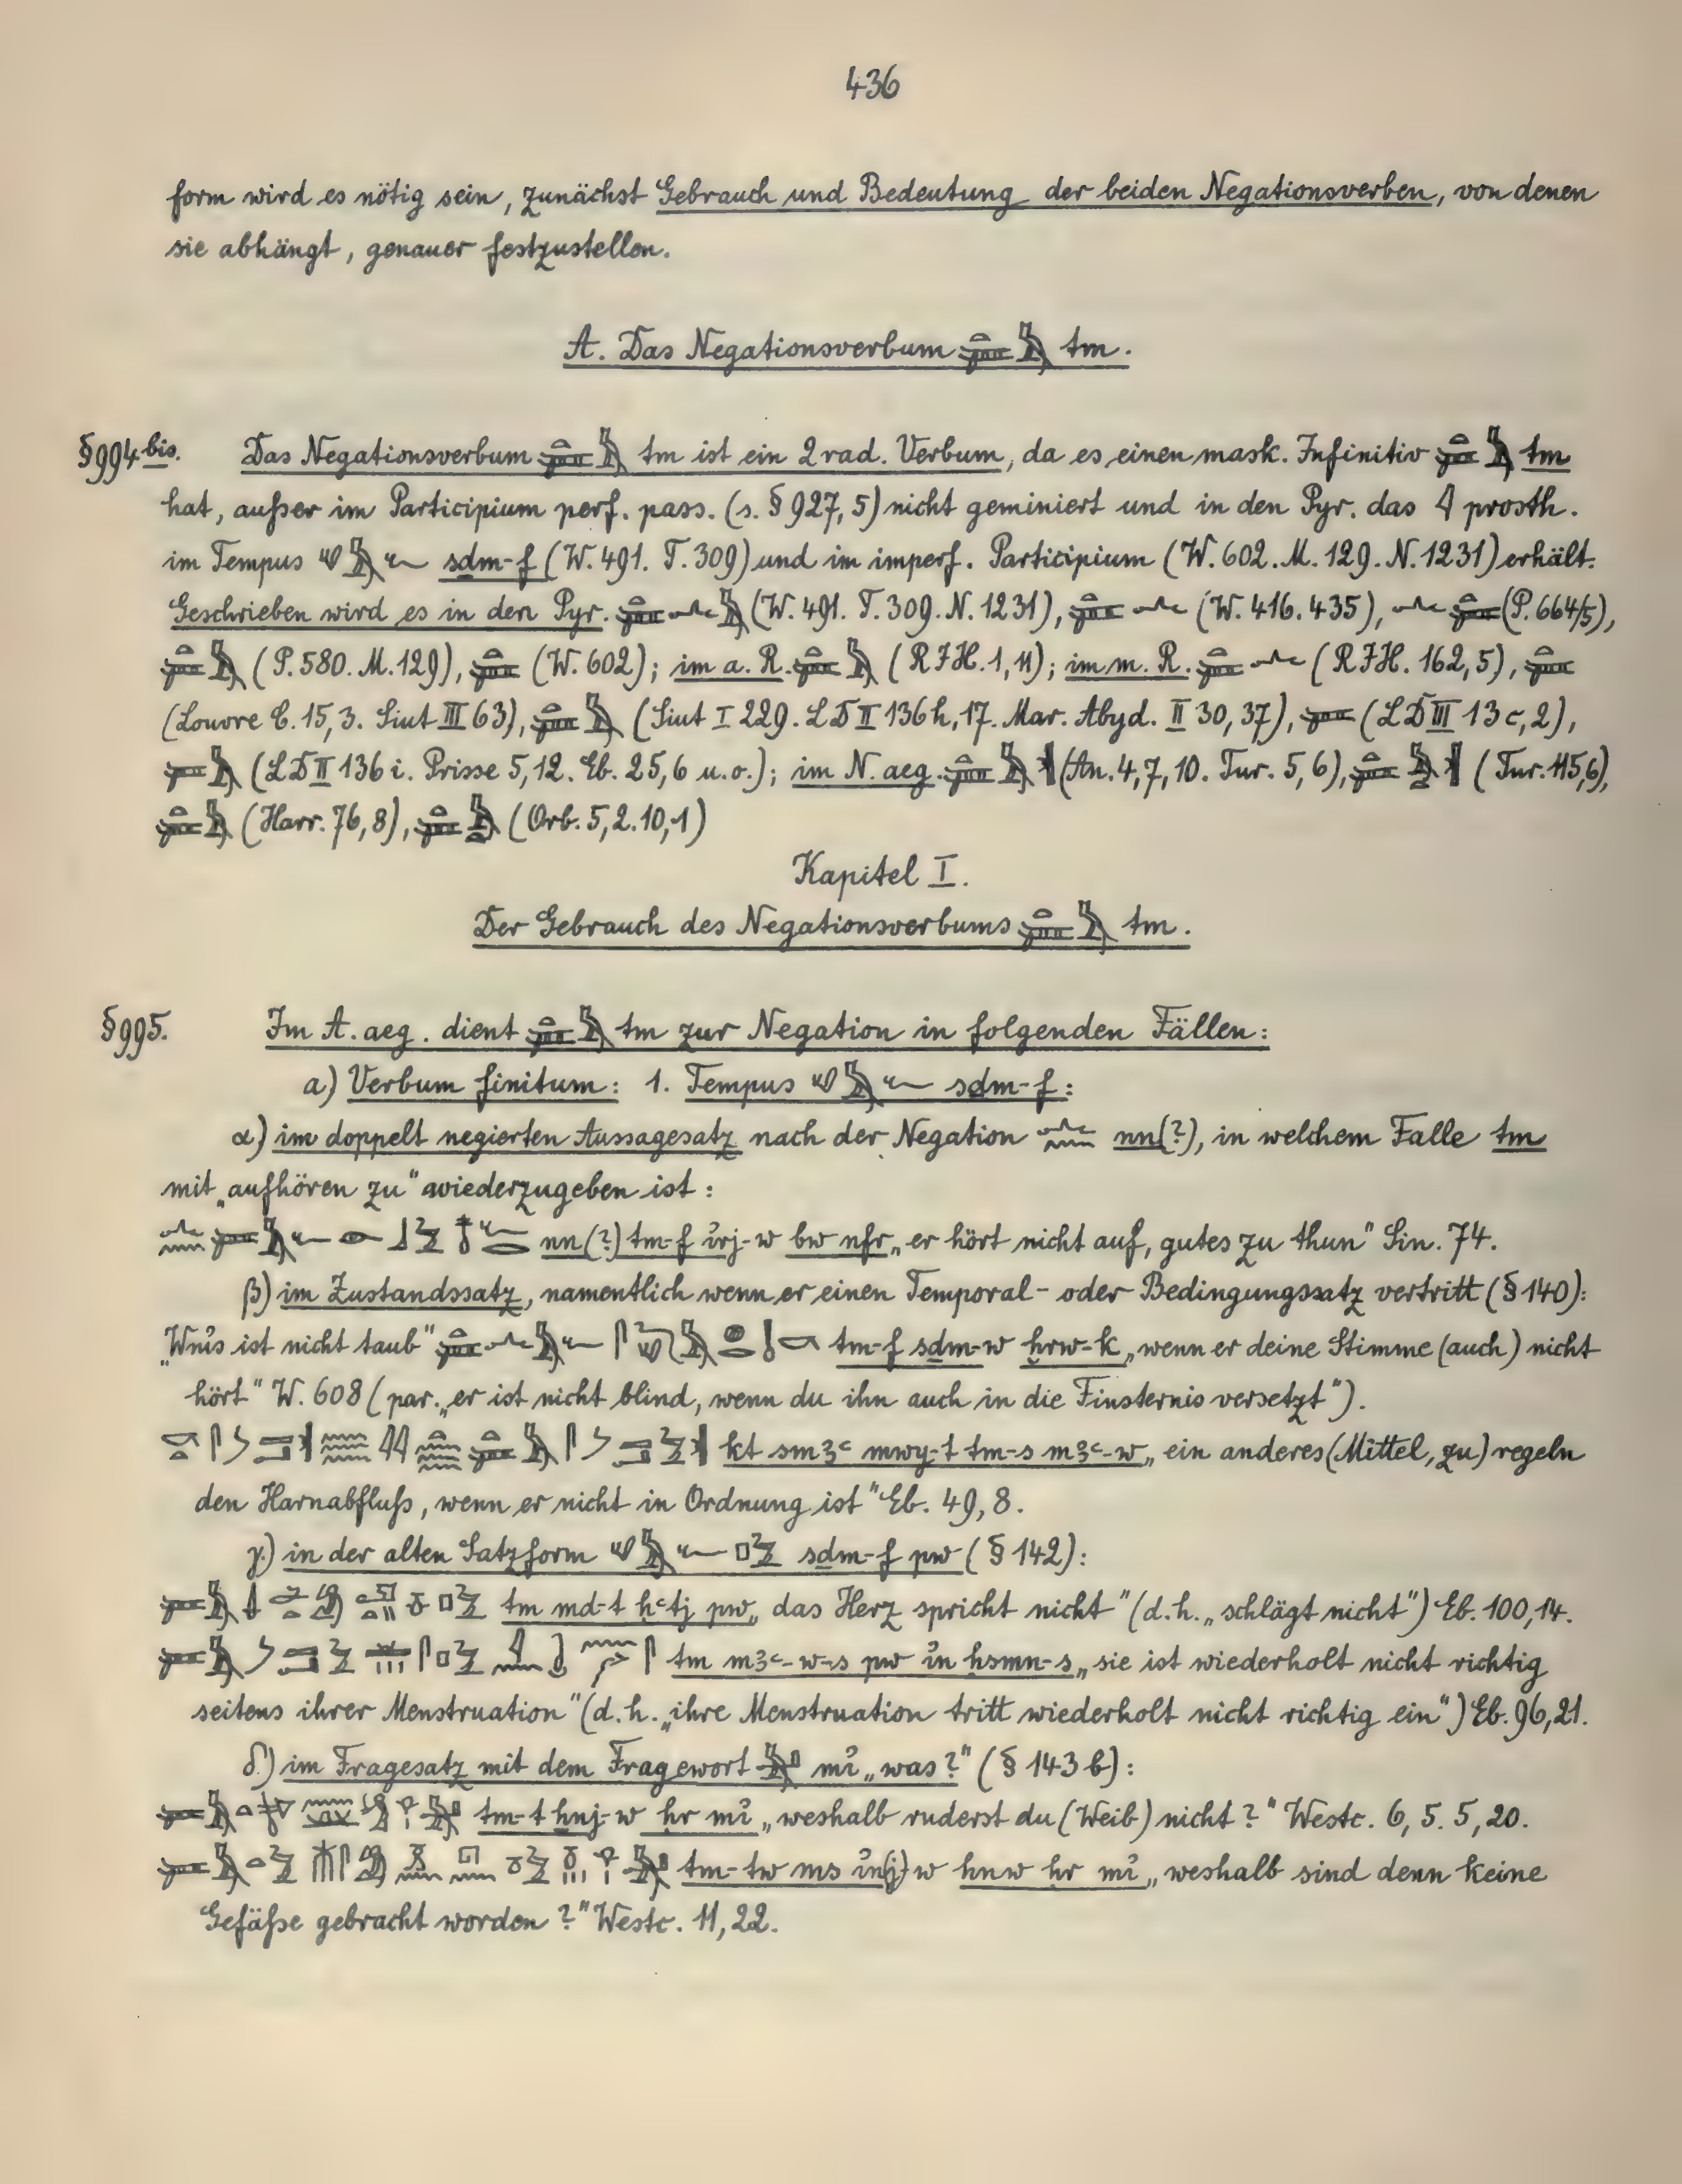 436
form wird es nötig sein, zunächst Gebrauch und Bedeutung der beiden Negationsverben, von denen
sie abhängt, genauer festzustellen.
A. Das Negationsverbum 𓍃𓅓 tm.
§994 bis. Das Negationsverbum tm ist ein 2rad. Verbum, da es einen mask. Infinitiv tm
hat, außer im Participium perf. pass. (s. §927,5) nicht geminiert und in den Pyr. das 𓇋 prosth.
im Tempus sḏm-f (W. 491. T. 309) und im imperf. Participium (W. 602. M. 129. N. 1231) erhält.
Geschrieben wird es in den Pyr. (W. 491. T. 309. N. 1231), (W. 416. 435), (P. 664/5),
(P. 580. M. 129), (W. 602); im a. R. (RJH. 1, 11); im m. R. (RJH. 162, 5),
(Louvre C. 15, 3. Siut III 63), (Siut I 229. LD II 136h, 17. Mar. Abyd. II 30, 37), (LD III 13c, 2),
(LD II 136i. Prisse 5, 12. Eb. 25, 6 u. o.); im N. aeg. (An. 4, 7, 10. Tur. 5, 6), (Tur. 115, 6),
(Harr. 76, 8), (Orb. 5, 2. 10, 1)
Kapitel I.
Der Gebrauch des Negationsverbums tm.
§995. Im A. aeg. dient tm zur Negation in folgenden Fällen:
a) Verbum finitum: 1. Tempus sḏm-f:
α) im doppelt negierten Aussagesatz nach der Negation nn(?), in welchem Falle tm
mit „aufhören zu“ wiederzugeben ist:
nn(?) tm-f ı̓rj-w bw nfr „er hört nicht auf, gutes zu thun“ Sin. 74.
β) im Zustandssatz, namentlich wenn er einen Temporal- oder Bedingungssatz vertritt (§140):
„Wnı̓s ist nicht taub“ tm-f sḏm-w ḫrw-k „wenn er deine Stimme (auch) nicht
hört“ W. 608 (par. „er ist nicht blind, wenn du ihn auch in die Finsternis versetzt“).
kt smꜣꜥ mwy-t tm-s mꜣꜥ-w „ein anderes (Mittel, zu) regeln
den Harnabfluß, wenn er nicht in Ordnung ist“ Eb. 49, 8.
γ) in der alten Satzform sḏm-f pw (§142):
tm md-t hꜥtj pw „das Herz spricht nicht“ (d. h. „schlägt nicht“) Eb. 100, 14.
tm mꜣꜥ-w-s pw ı̓n hsmn-s „sie ist wiederholt nicht richtig
seitens ihrer Menstruation“ (d. h. „ihre Menstruation tritt wiederholt nicht richtig ein“) Eb. 96, 21.
δ) im Fragesatz mit dem Fragewort mı̓ „was?“ (§143b):
tm-t ẖnj-w hr mı̓ „weshalb ruderst du (Weib) nicht?“ Westc. 6, 5. 5, 20.
tm-tw ms ı̓n(j)-w hnw hr mı̓ „weshalb sind denn keine
Gefäße gebracht worden?“ Westc. 11, 22.